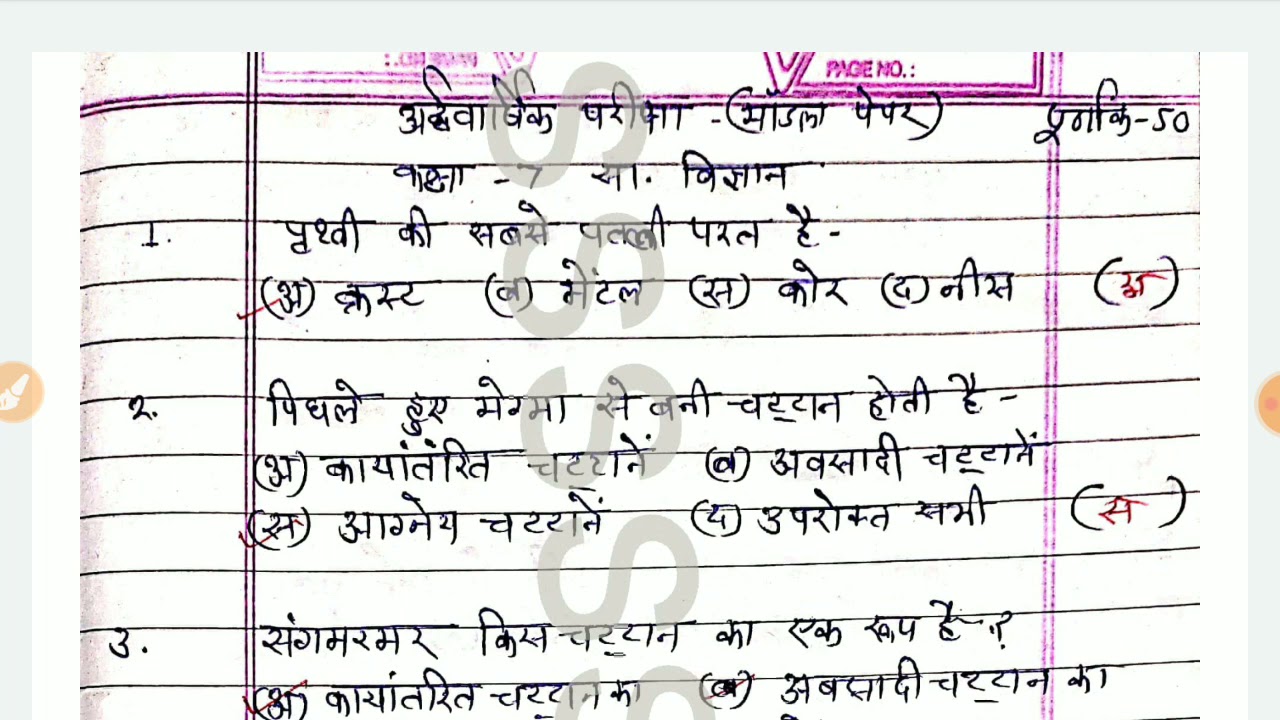 PAGE NO.:
अर्द्धवार्षिक परीक्षा - (मॉडल पेपर) पूर्णांक-50
कक्षा - 7 सा. विज्ञान
1. पृथ्वी की सबसे पतली परत है -
(अ) क्रस्ट (ब) मेंटल (स) कोर (द) नीस (अ)
2. पिघले हुए मेग्मा से बनी चट्टान होती है -
(अ) कायांतंरित चट्टानें (ब) अवसादी चट्टानें
(स) आग्नेय चट्टानें (द) उपरोक्त सभी (स)
3. संगमरमर किस चट्टान का एक रूप है -?
(अ) कायांतरित चट्टान का (ब) अवसादी चट्टान का
S
S
S
S